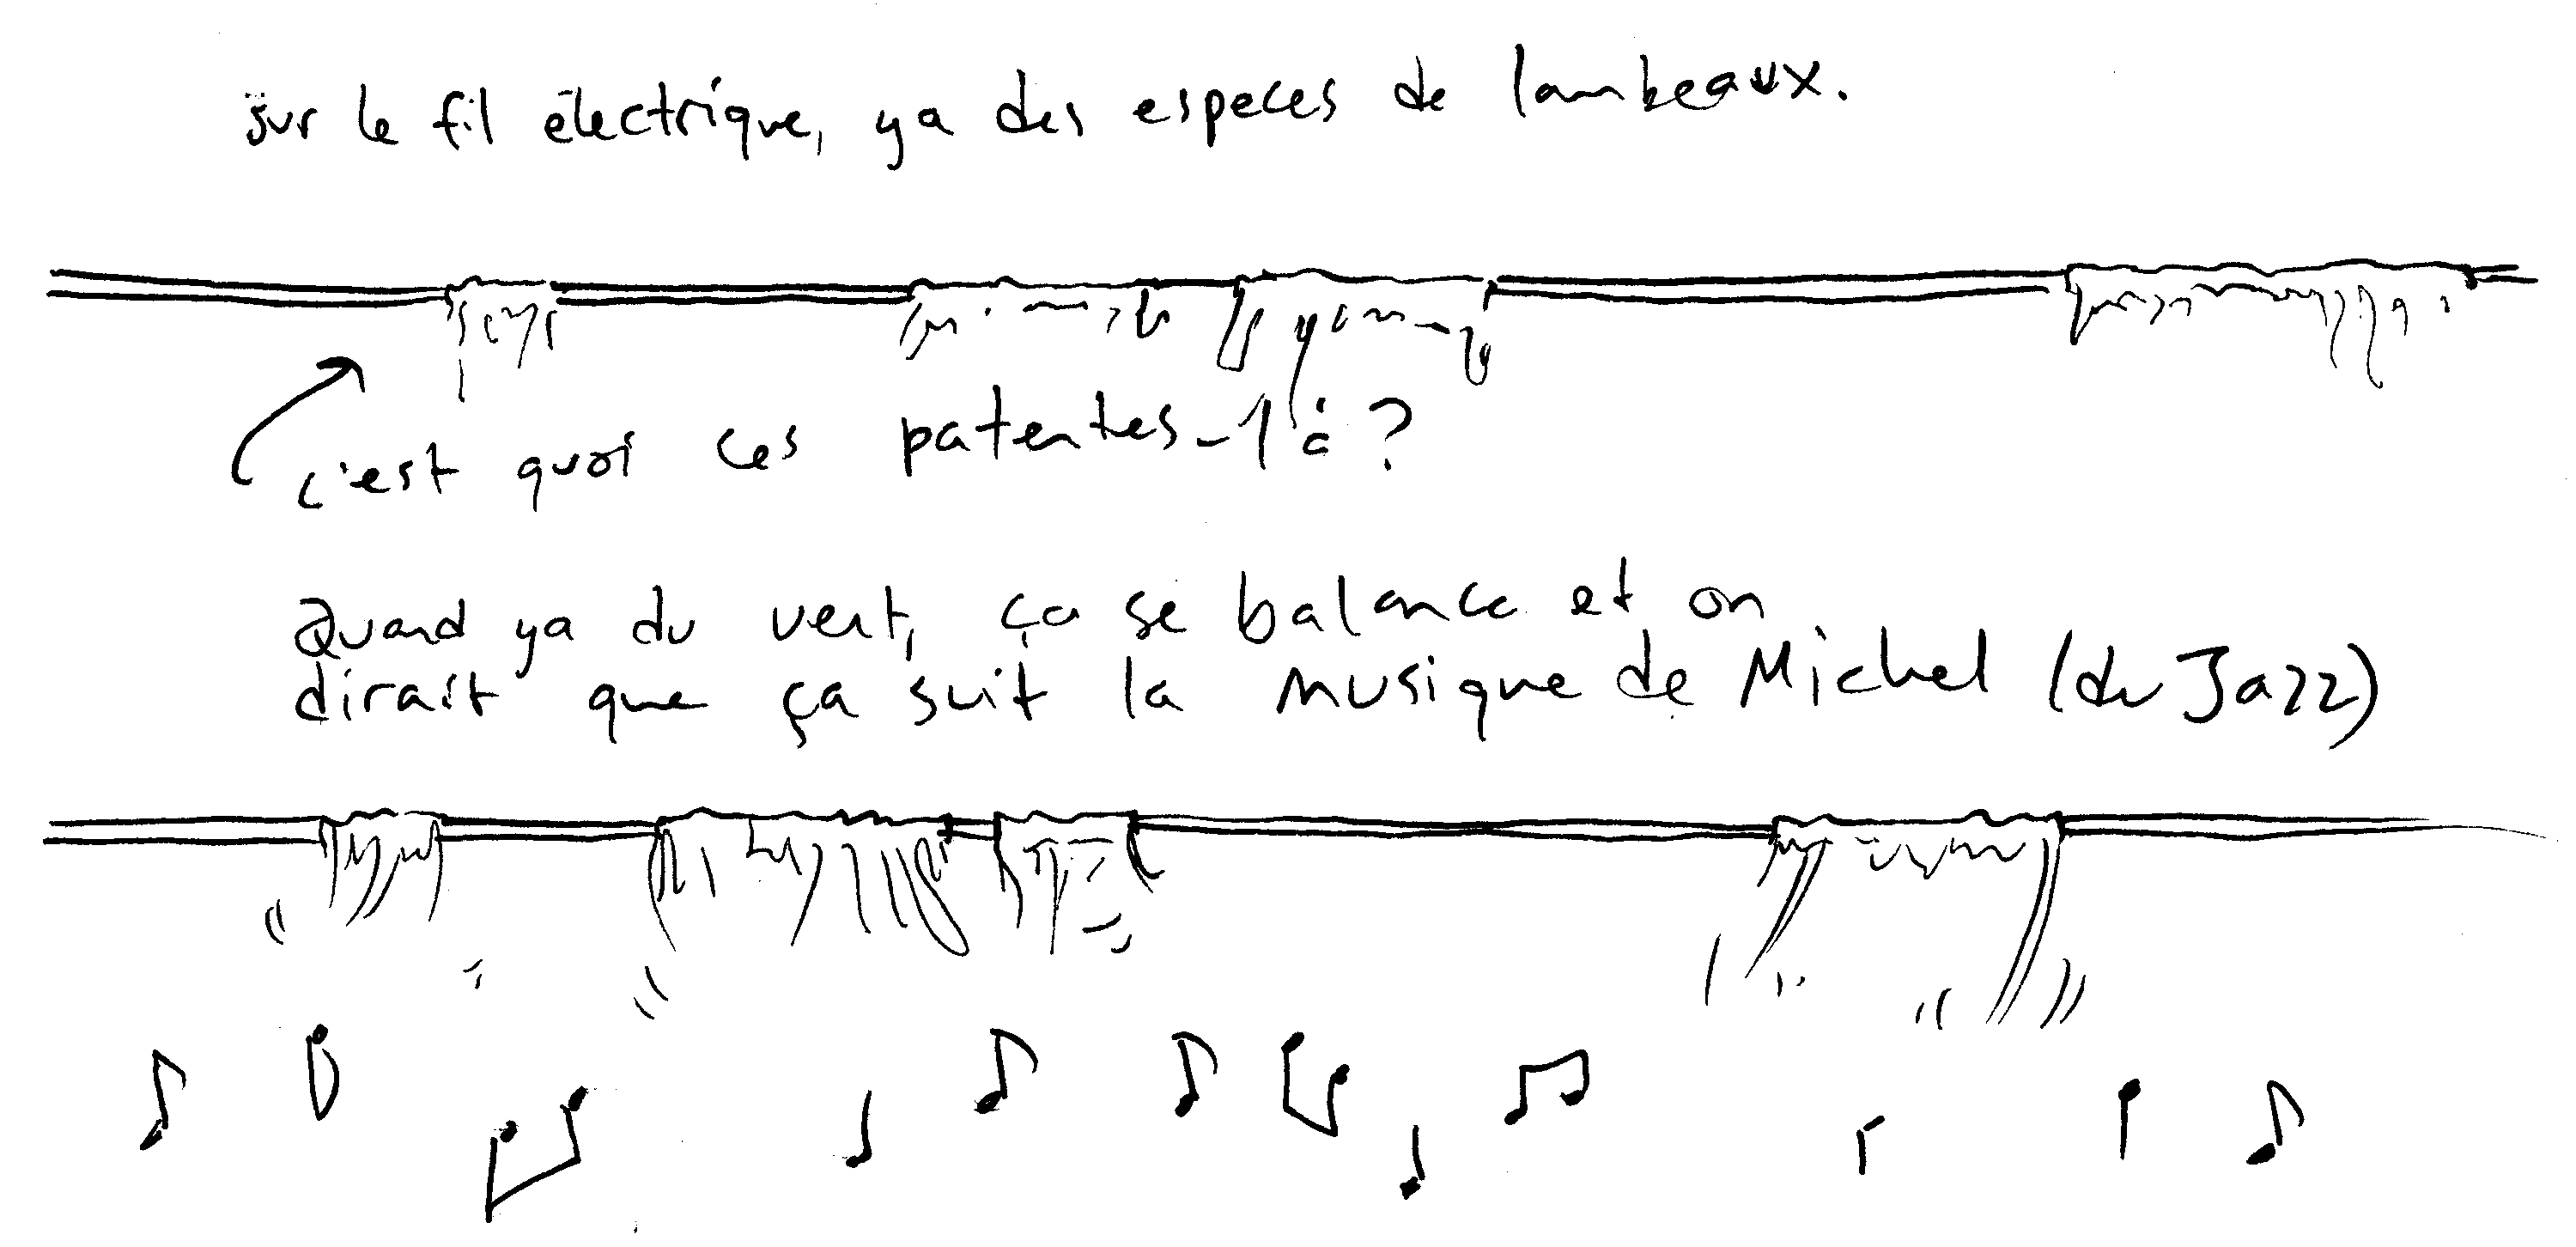 sur le fil électrique, ya des especes de lambeaux.
c'est quoi ces patentes-là ?
Quand ya du vent, ça se balance et on
dirait que ça suit la musique de Michel (du Jazz)